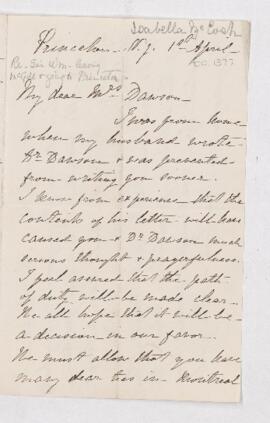 Isabella McCosh
Princeton N.J. 1st April
Re. Sir Wm. leaving
McGill & going to Princeton
My dear Mrs Dawson
I was from home
when my husband wrote
Dr Dawson & was prevented
from writing you sooner.
I know from experience that the
contents of his letter will have
caused you & Dr Dawson much
serious thought & prayerfulness.
I feel assured that the path
of duty will be made clear.
We all hope that it will be
a decision in our favor.
We must allow that you have
many dear ties in Montreal